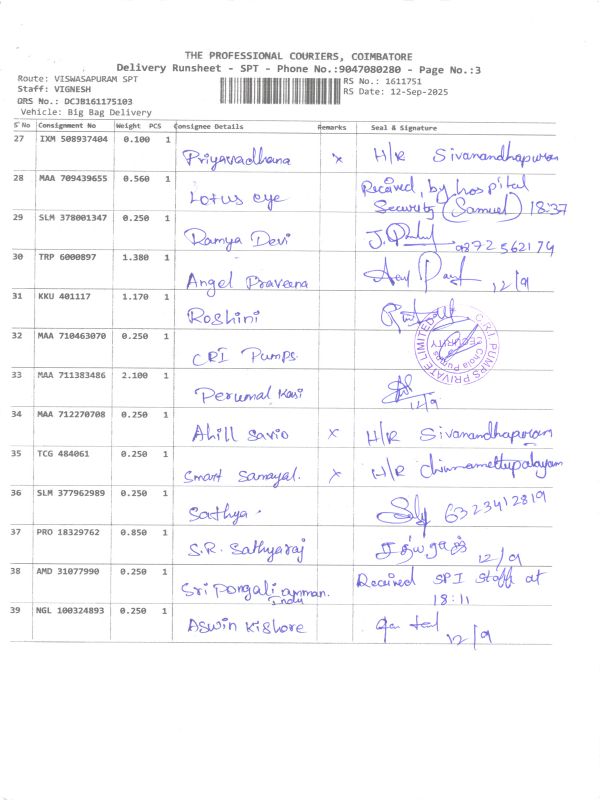 THE PROFESSIONAL COURIERS, COIMBATORE
Delivery Runsheet - SPT - Phone No.:9047080280 - Page No.:3
Route: VISWASAPURAM SPT
RS No.: 1611751
Staff: VIGNESH
RS Date: 12-Sep-2025
DRS No.: DCJB161175103
Vehicle: Big Bag Delivery
S No Consignment No Weight PCS Consignee Details Remarks Seal & Signature
27 IXM 508937404 0.100 1
Priyavadhana x H/R Sivanandhapuram
28 MAA 709439655 0.560 1
Lotus eye Received, by hospital
Security (Samuel) 18:37
29 SLM 378001347 0.250 1
Ramya Devi
30 TRP 6000897 1.380 1
Angel Praveena 12/9
31 KKU 401117 1.170 1
Roshini
32 MAA 710463070 0.250 1
CRI Pumps
C.R.I. PUMPS PRIVATE LIMITED
SECURITY
33 MAA 711383486 2.100 1
Perumal Kasi 12/9
34 MAA 712270708 0.250 1
Ahill Savio x H/R Sivanandhapuram
35 TCG 484061 0.250 1
Smart Samayal. x H/R Chinnamettupalayam
36 SLM 377962989 0.250 1
Sathya. 6323412819
37 PRO 18329762 0.850 1
S.R. Sathyaraj 12/9
38 AMD 31077990 0.250 1
Sri Pongali amman. Received SPI Staff at
Indu 18:11
39 NGL 100324893 0.250 1
Aswin Kishore 12/9